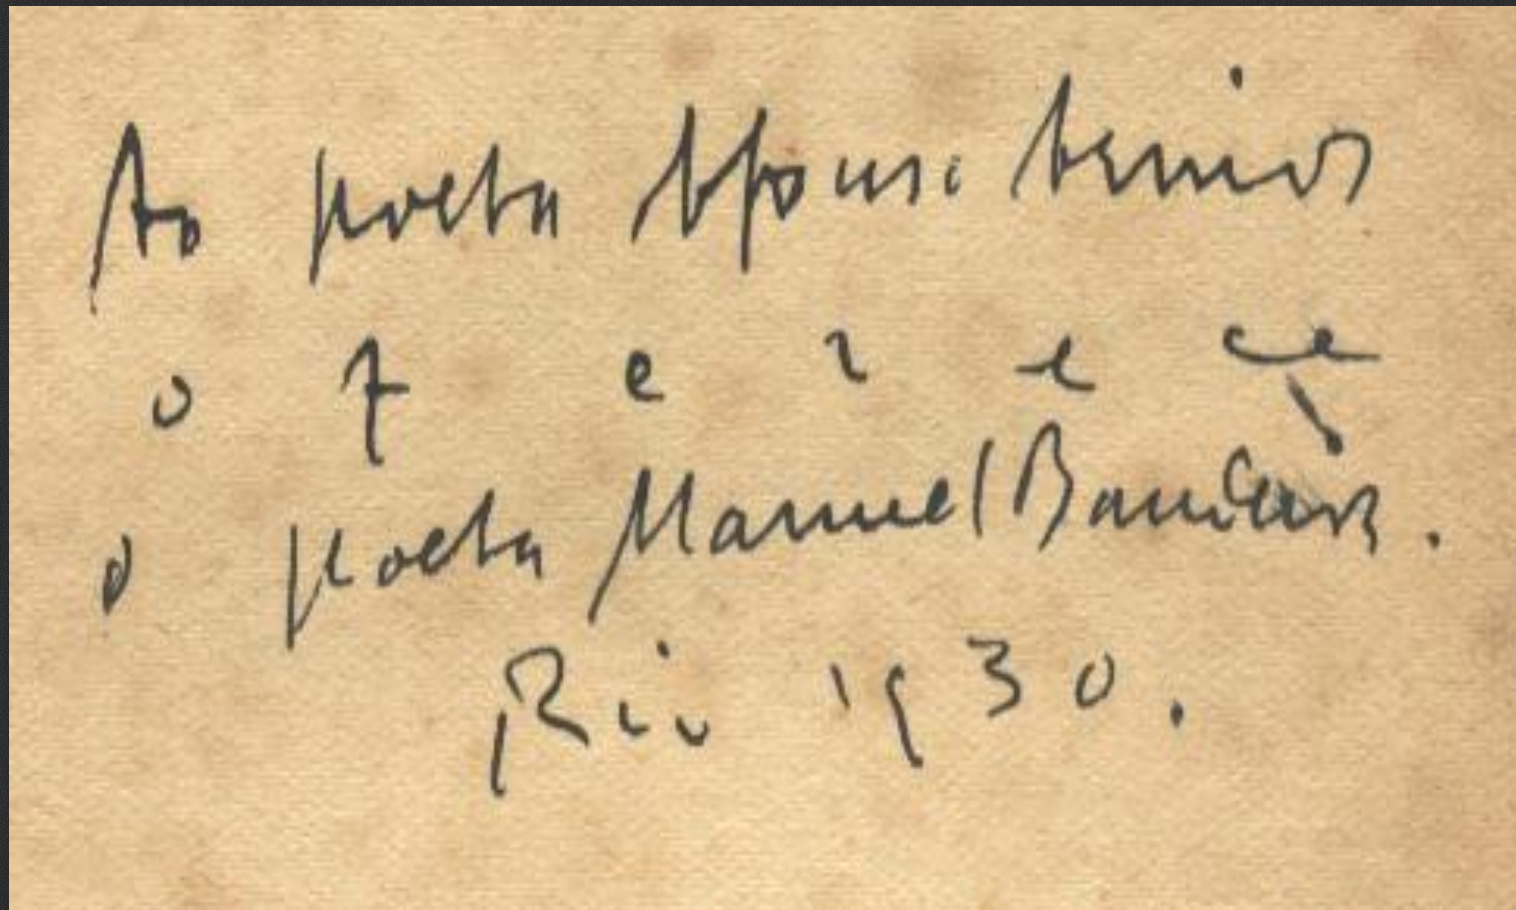 Ao poeta Afonso Arinos
o f e r e ce
o poeta Manuel Bandeira.
Rio 1930.